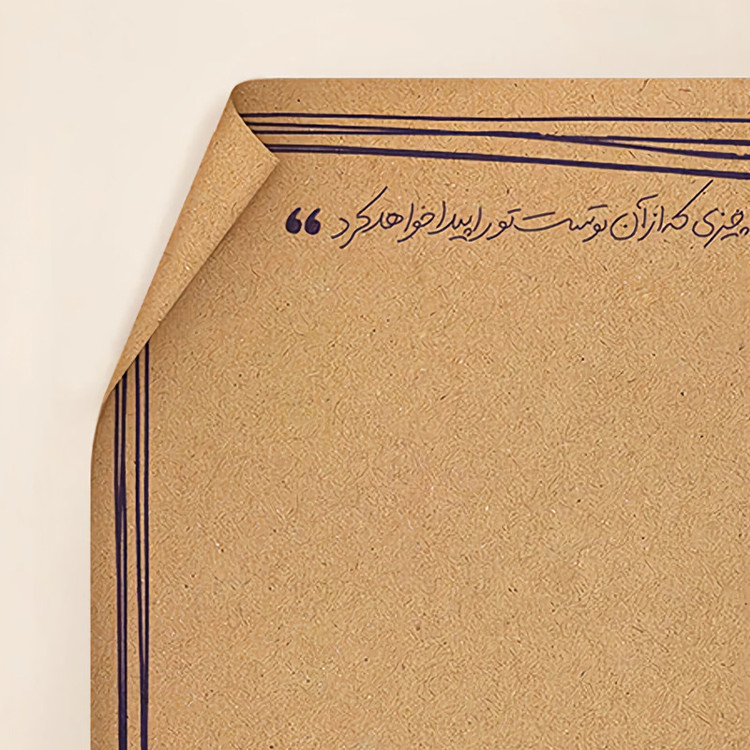 چیزی که از آن توست تو را پیدا خواهد کرد “